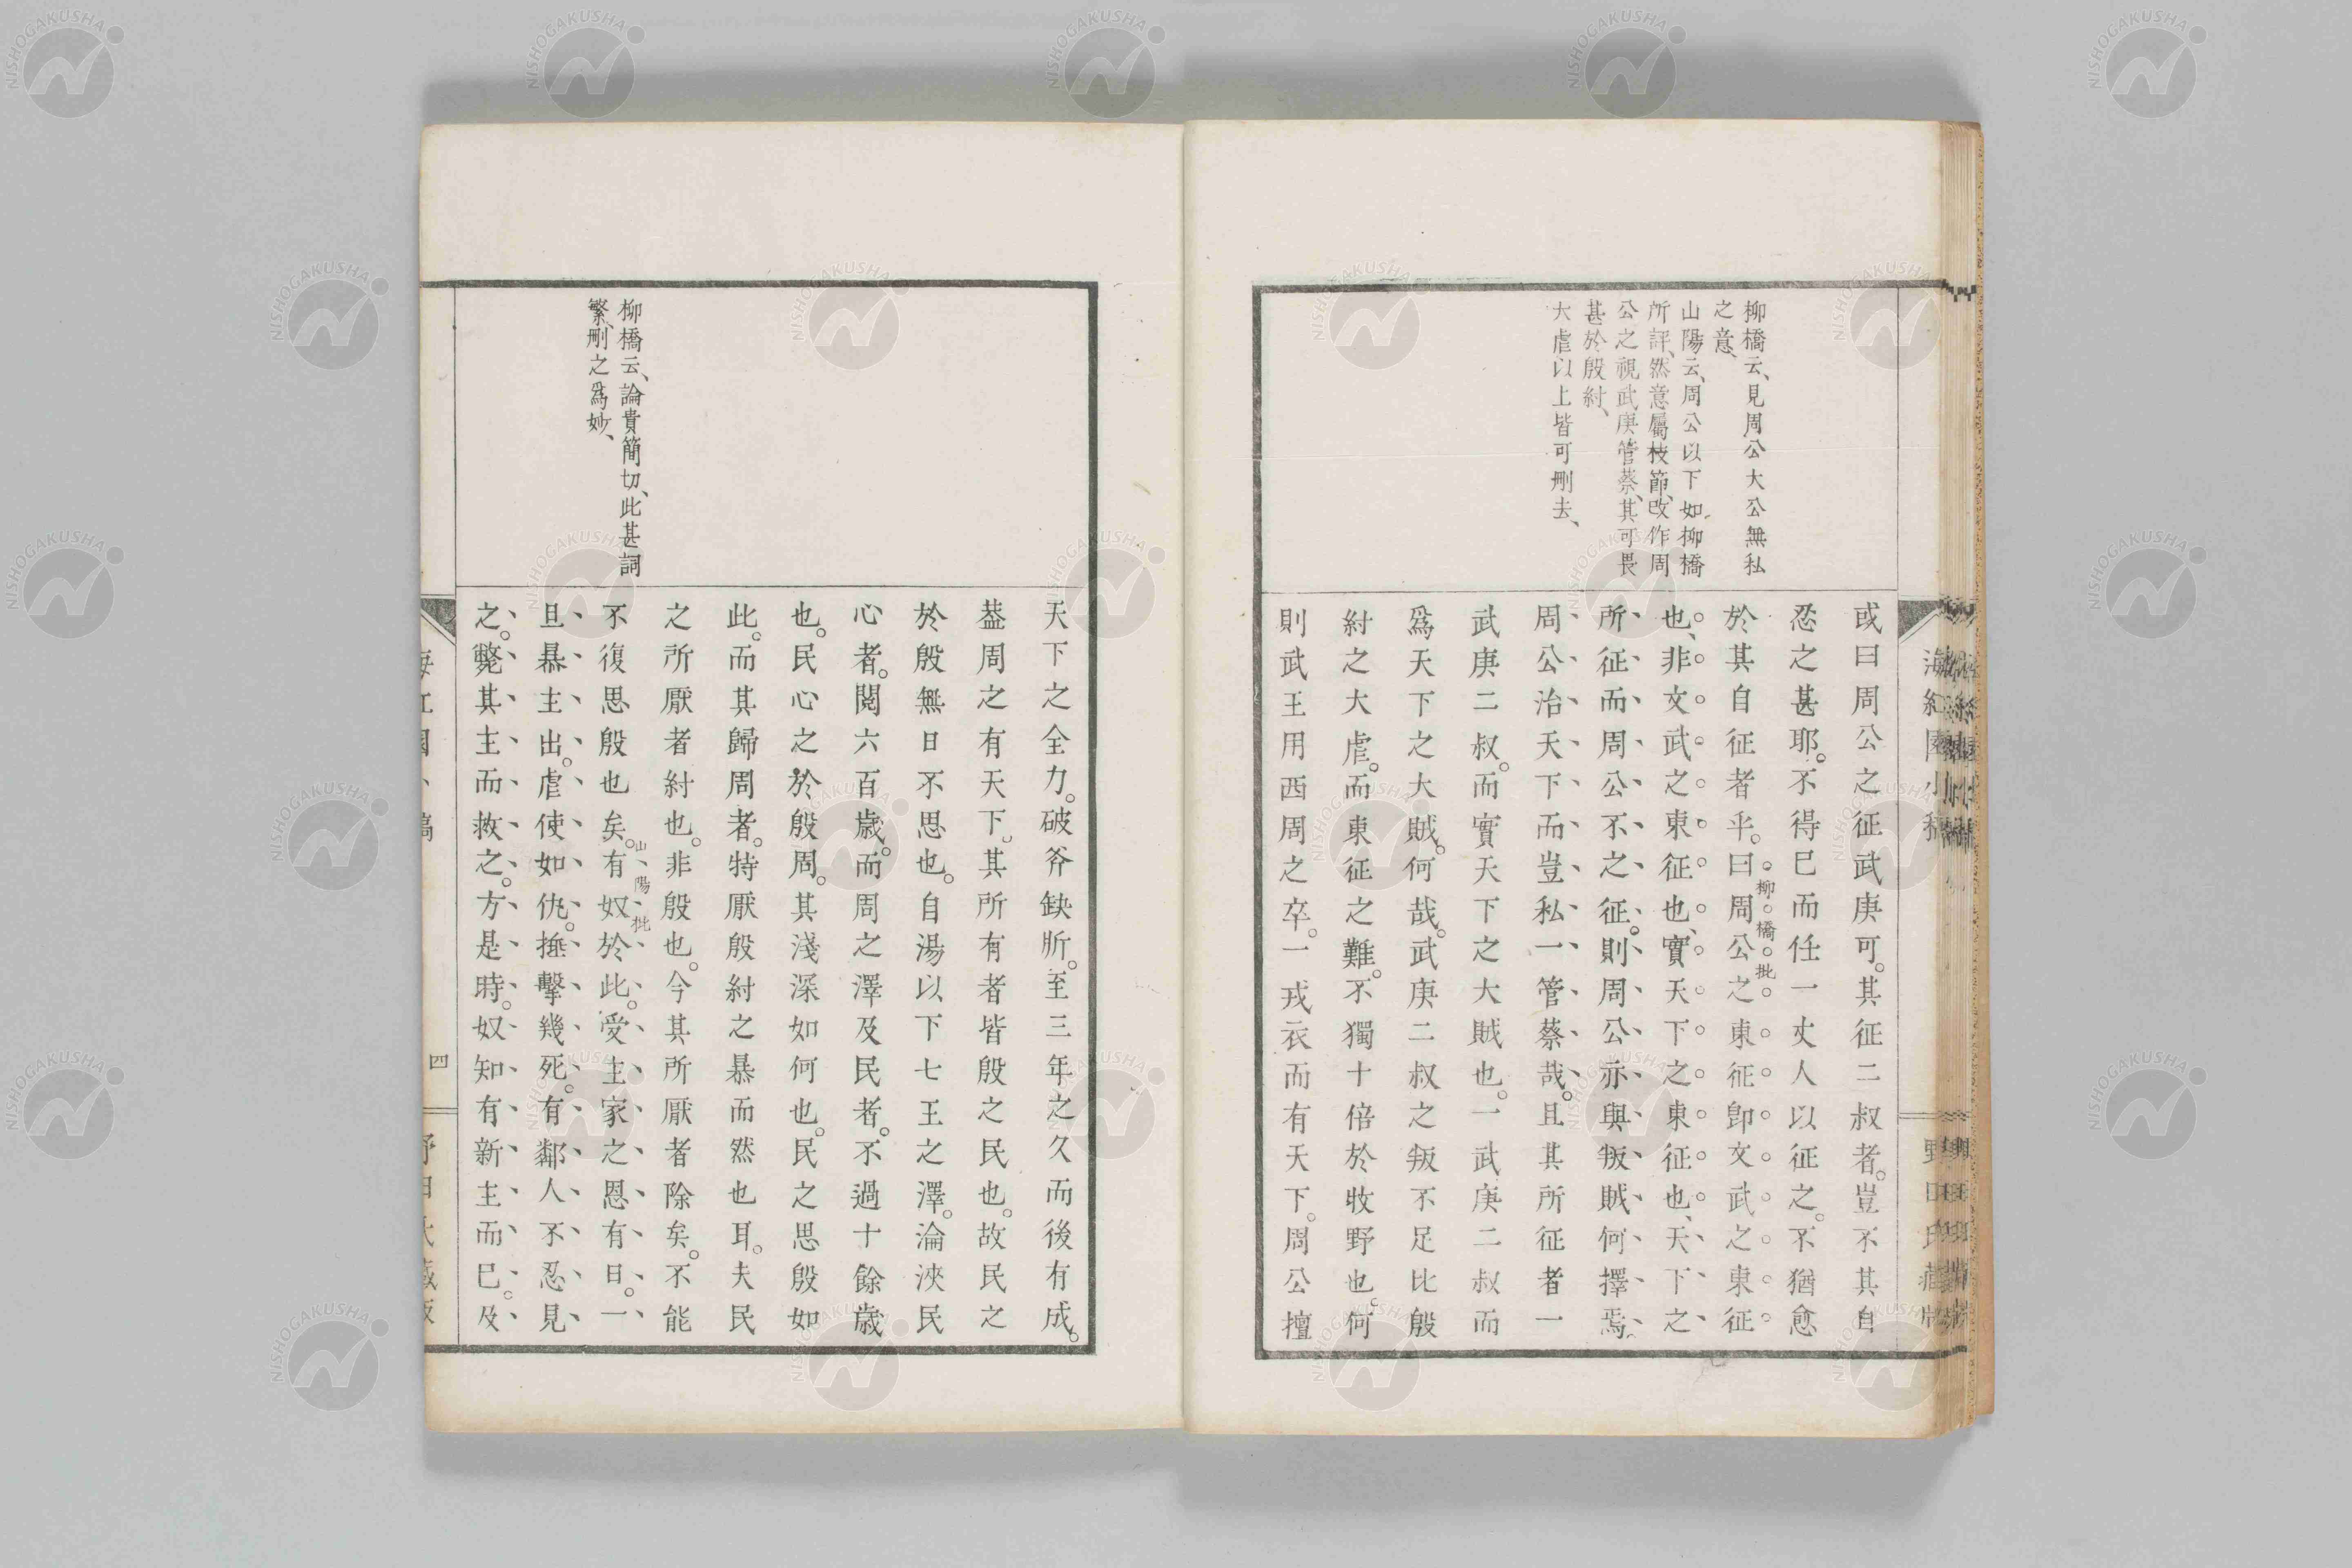 柳橋云、見周公大公無私
之意、
山陽云、周公以下如柳橋
所評、然意屬枝節、改作周
公之視武庚管蔡、其可畏
甚於殷紂、
大虐以上皆可刪去、
或曰周公之征武庚可。其征二叔者。豈不其自
忍之甚耶。不得已而任一丈人以征之。不猶愈
於其自征者乎。曰周公之東征卽文武之東征
柳橋批
也、非文武之東征也、實天下之東征也、天下之
所征而周公不之征。則周公亦與叛賊何擇焉、
周公治天下而豈私一管蔡哉。且其所征者一
武庚二叔。而實天下之大賊也。一武庚二叔而
爲天下之大賊。何哉。武庚二叔之叛不足比殷
紂之大虐。而東征之難。不獨十倍於牧野也。何
則武王用西周之卒。一戎衣而有天下。周公擅
海紅園小稿
野田氏藏版
柳橋云、論貴簡切、此甚詞
繁、刪之爲妙、
天下之全力。破斧缺斨。至三年之久而後有成。
葢周之有天下。其所有者皆殷之民也。故民之
於殷無日不思也。自湯以下七王之澤。淪浹民
心者。閱六百歲。而周之澤及民者。不過十餘歲
也。民心之於殷周。其淺深如何也。民之思殷如
此。而其歸周者。特厭殷紂之暴而然也耳。夫民
之所厭者紂也。非殷也。今其所厭者除矣。不能
不復思殷也矣。有奴於此。受主家之恩有日。一
山陽批
旦暴主出。虐使如仇。捶擊幾死。有鄰人不忍見
之。斃其主而救之。方是時。奴知有新主而已。及
四